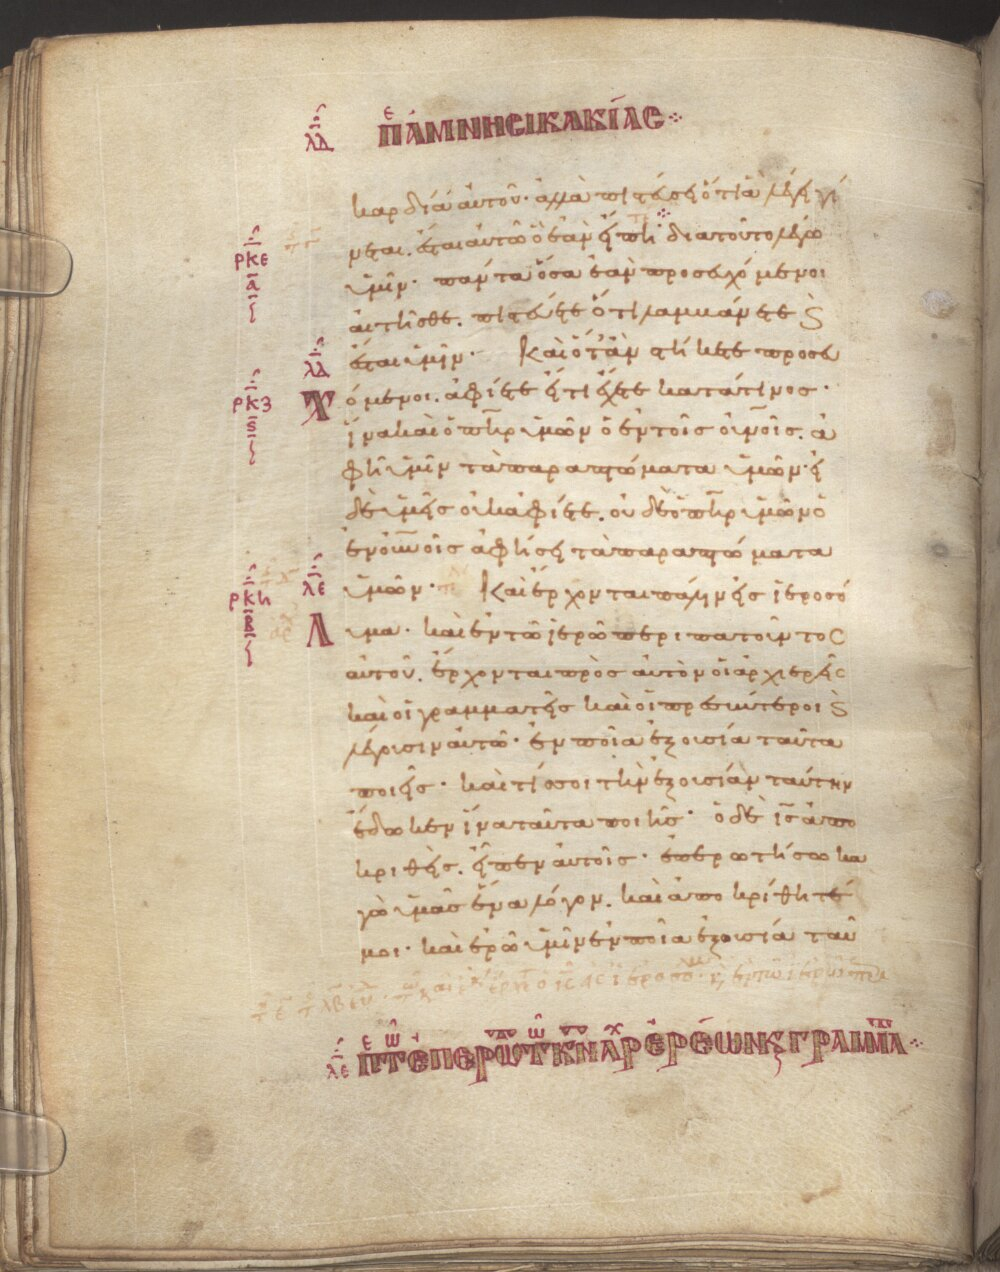 λδ πε ἀμνησικακίας
καρδία αὐτοῦ· ἀλλὰ πιστεύσει ὅτι ἃ λέγει γί
νεται. ἔσται αὐτῶ ὃ ἐὰν εἴπη· διατοῦτο λέγω
ρκε
α
ὑμῖν· πάντα ὅσα ἐὰν προσευχόμενοι
αἰτῆσθε. πιστεύετε ὅτι λαμβάνετε ϗ
λδ
ἔσται ὑμῖν· Καὶ ὅταν στήκετε προσευ
ρκϛ
ϛ
χόμενοι. ἀφίετε εἴ τι ἔχετε κατά τινος·
ἵνα καὶ ὁ πηρ ὑμῶν ὁ ἐν τοῖς οὐνοῖς. ἀ
φῆ ὑμῖν τὰ παραπτώματα ὑμῶν· εἰ
δὲ ὑμεῖς οὐκ ἀφίετε. οὐδὲ ὁ πηρ ὑμῶν ὁ
ἐν οὐνοῖς ἀφήσει τὰ παραπτώματα
λε
ρκη
β
ὑμῶν· Καὶ ἔρχονται πάλιν εἰς ἱεροσό
λυμα· καὶ ἐν τῶ ἱερῶ περιπατοῦντος
αὐτοῦ. ἔρχονται πρὸς αὐτὸν οἱ ἀρχιερεῖς
καὶ οἱ γραμματεῖς καὶ οἱ πρεσβύτεροι ϗ
λέγουσιν αὐτῶ· ἐν ποία ἐξουσία ταῦτα
ποιεῖς· καὶ τίς σοι τὴν ἐξουσίαν ταύτην
ἔδωκεν ἵνα ταῦτα ποιῆς· ὁ δὲ ις ἀπο
κριθεὶς. εἶπεν αὐτοῖς· ἐπερωτήσω κα
γὼ ὑμᾶς ἕνα λόγον. καὶ ἀποκρίθητέ
μοι· καὶ ἐρῶ ὑμῖν ἐν ποία ἐξουσία ταῦ